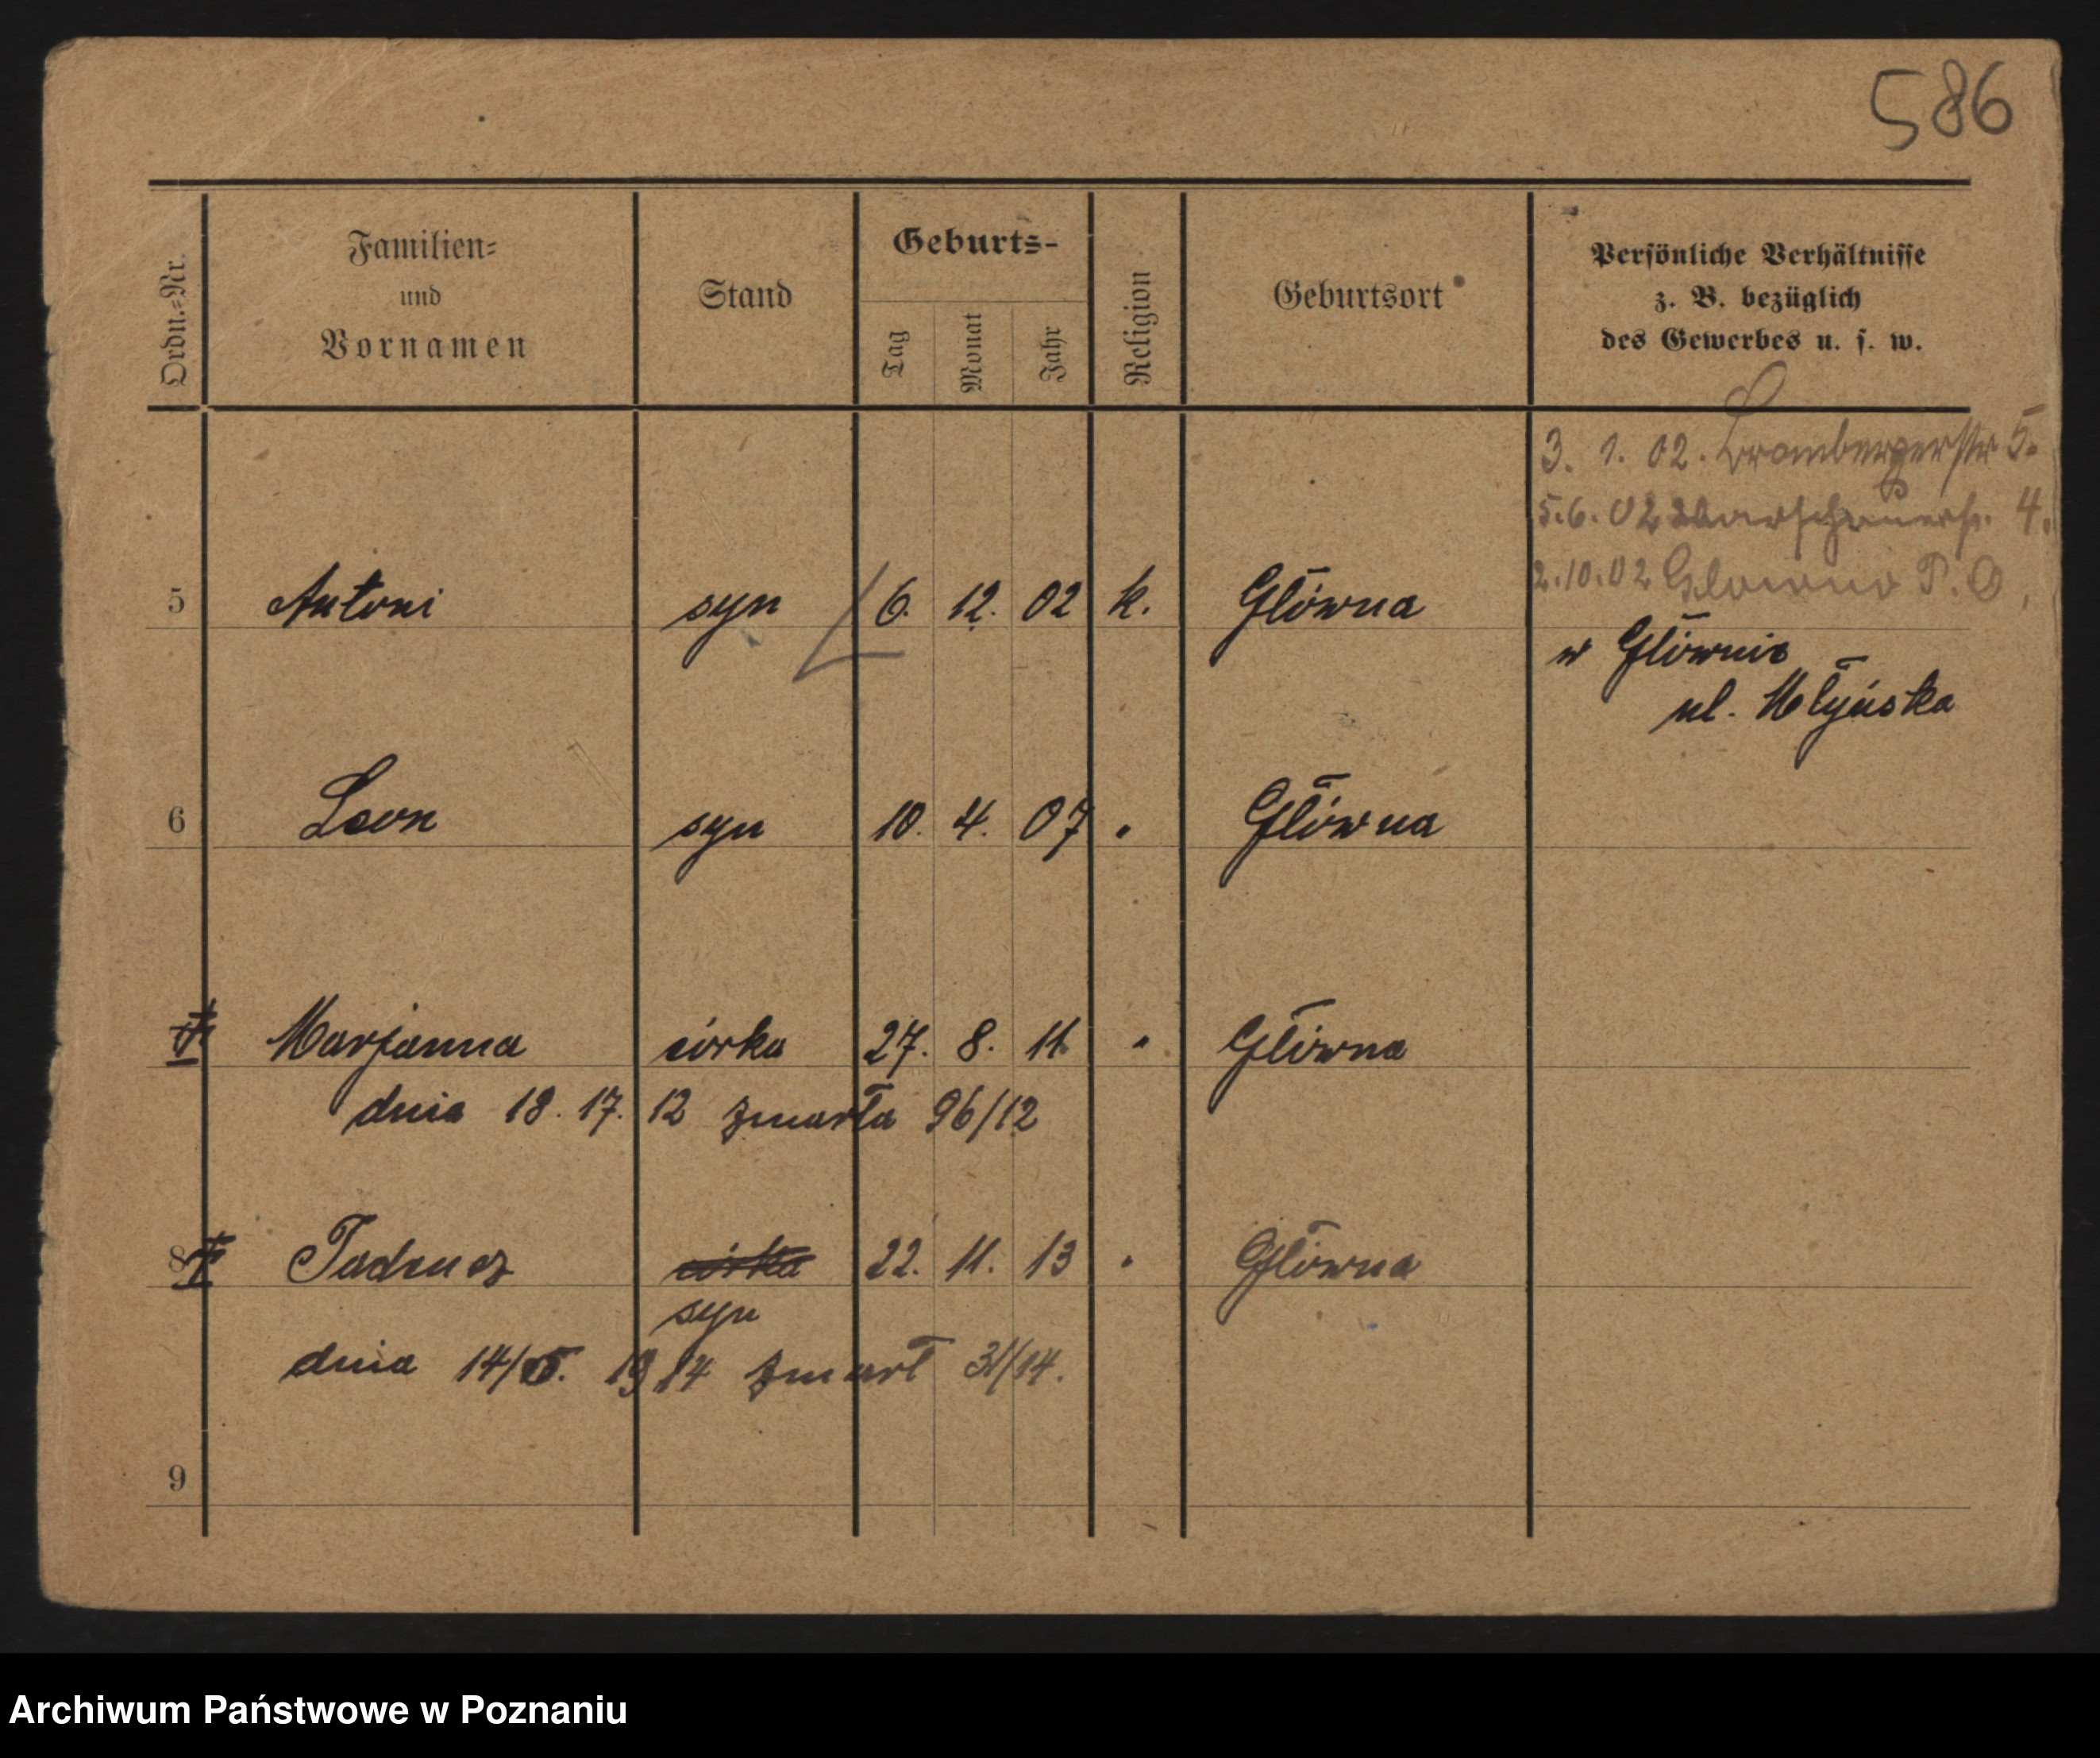 586
Ordn.-Nr.
Familien-
und
Vornamen
Stand
Geburts-
Tag
Monat
Jahr
Religion
Geburtsort
Persönliche Verhältnisse
z. B. bezüglich
des Gewerbes u. s. w.
3. 1. 02. Brombergerstr 5.
5.6.02 Warschauerstr. 4.
2.10.02 Glowno P. O.
5 Antoni syn 6. 12. 02 k. Główna
w Głównie
ul. Młyńska
6 Leon syn 10. 4. 07 " Główna
Marjanna córka 27. 8. 11. " Główna
dnia 18. 17. 12 zmarła 96/12
8 Tadeusz córka 22. 11. 13 " Główna
syn
dnia 14/5. 1914 zmarł 31/14.
9
Archiwum Państwowe w Poznaniu